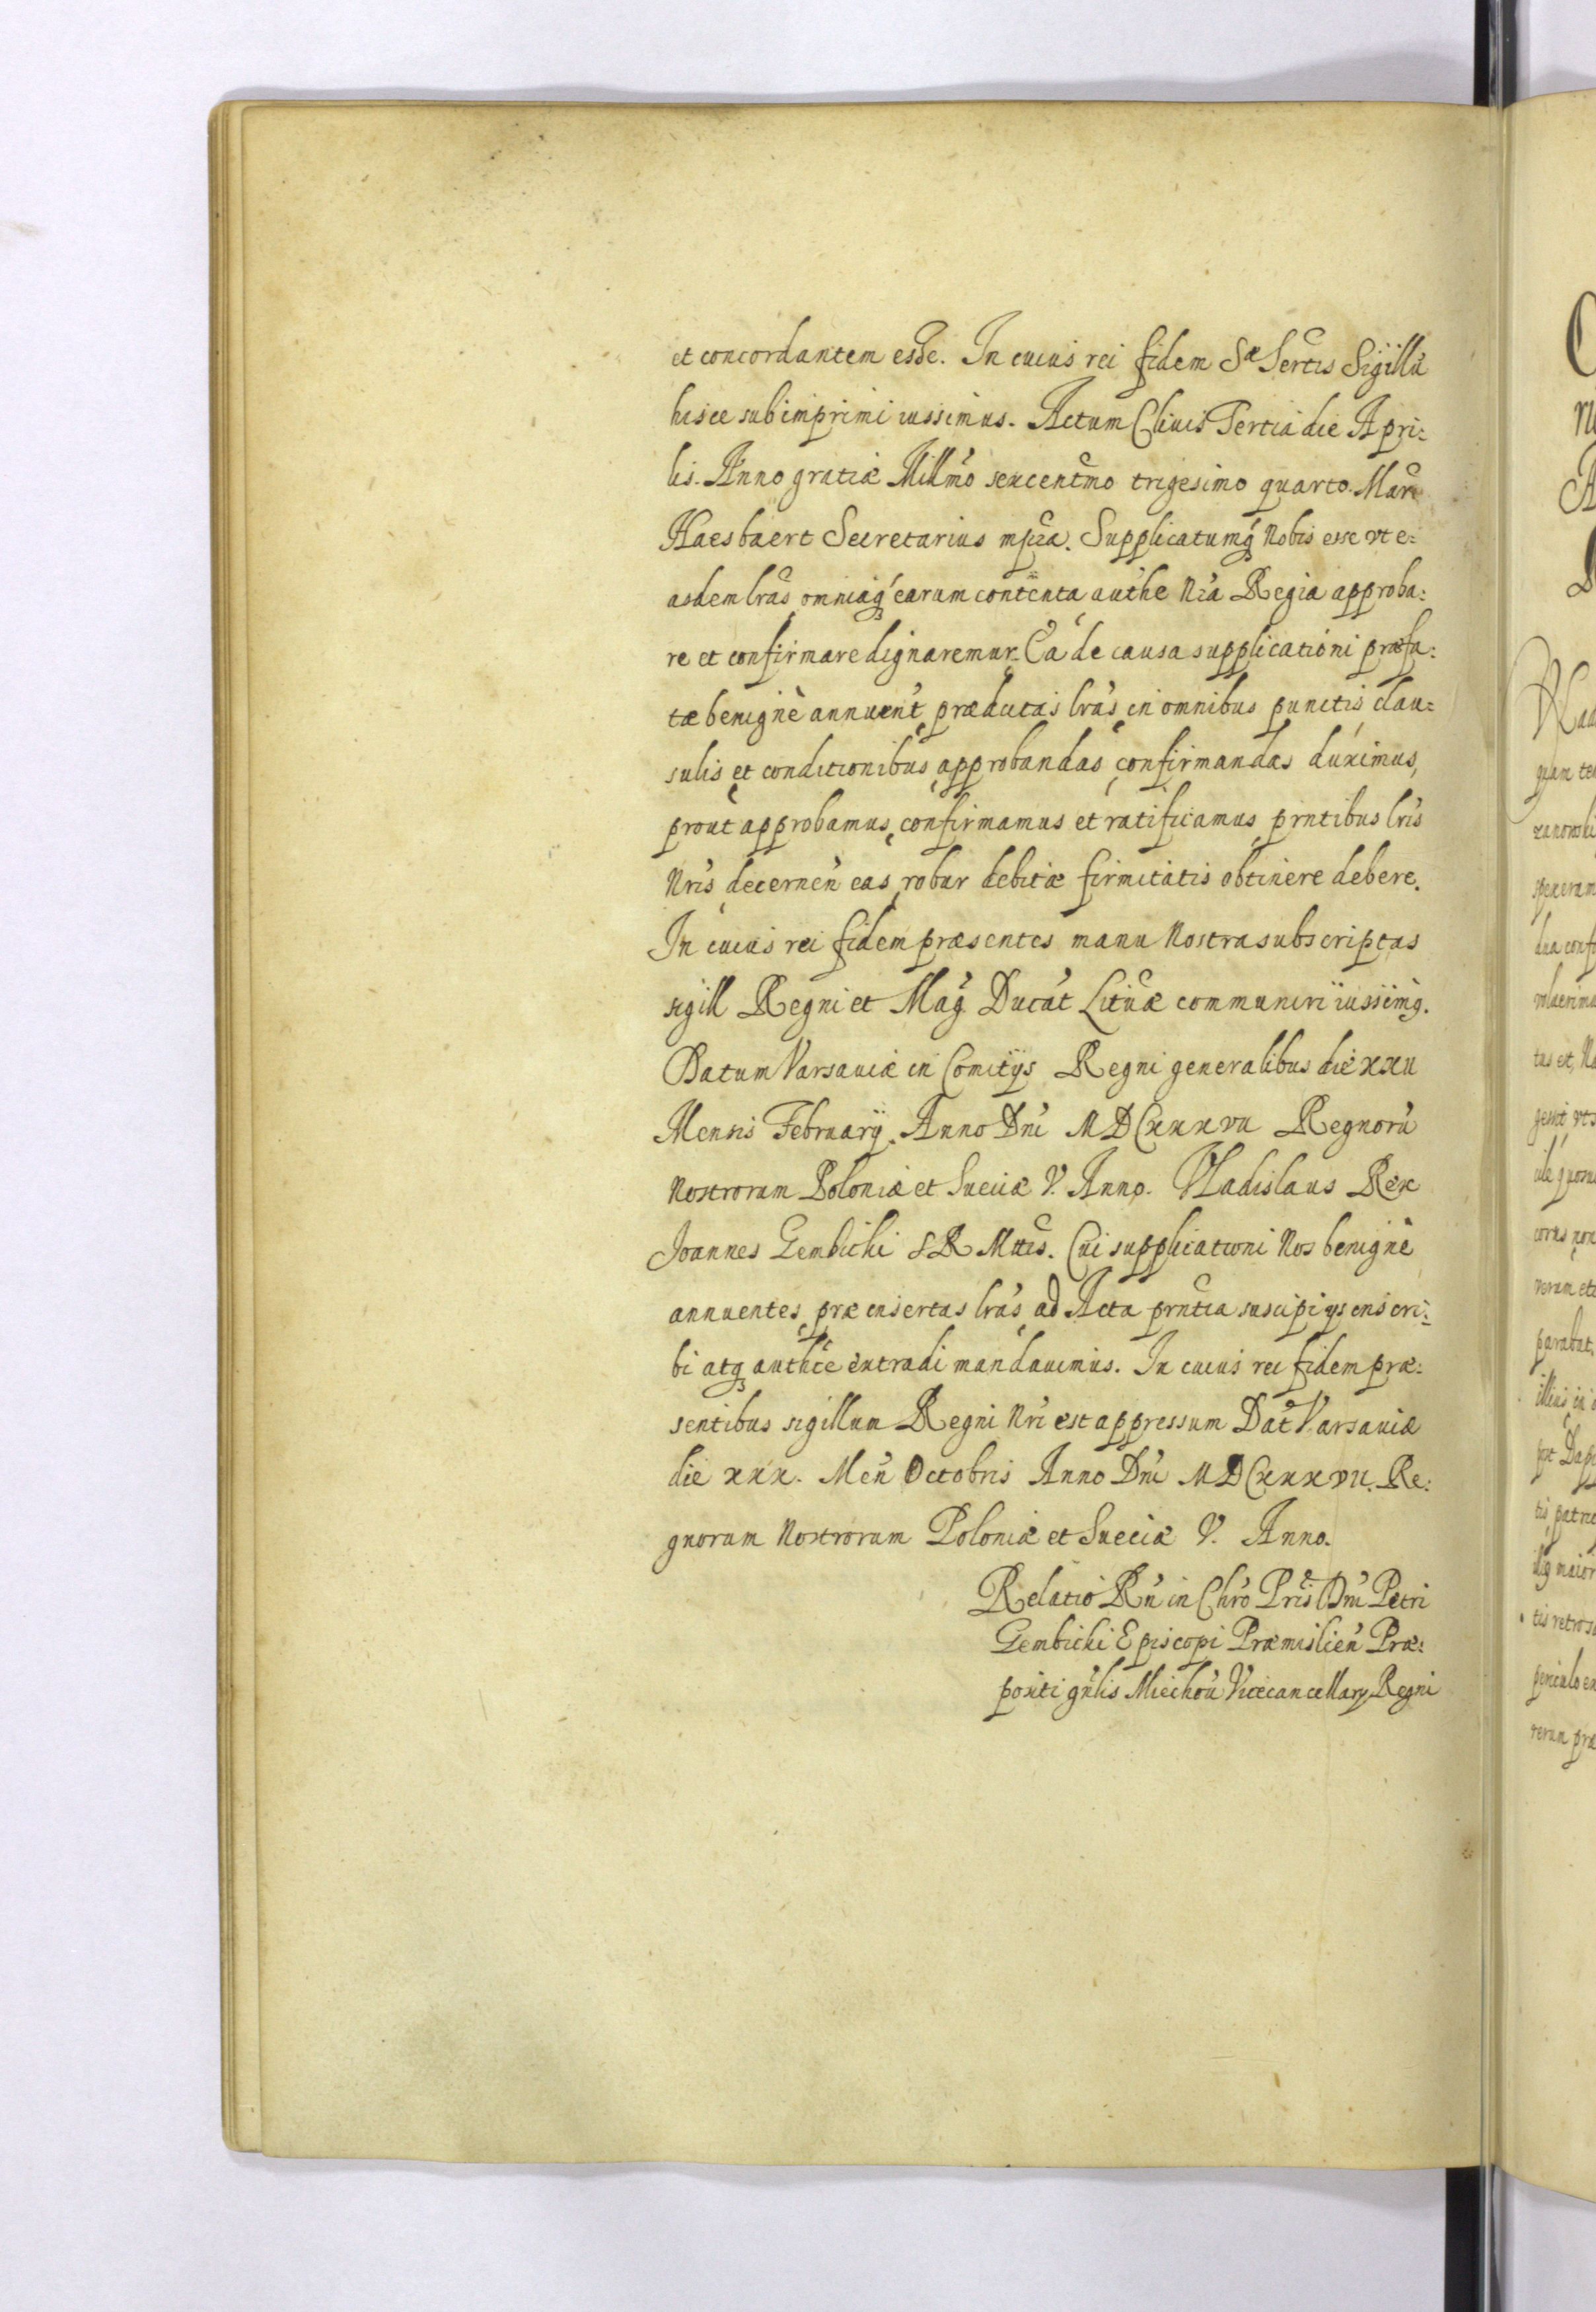 et concordantem esse. In cuius rei fidem Sæ Sertis Sigillũ
hisce subimprimi iussimus. Actum Cliuis Tertia die Apri:
lis. Anno gratiæ Millmo sexcentmo trigesimo quarto. Marc
Haesbaert Secretarius mpra. Supplicatumq Nobis esse vt e:
asdem lras omniaq earum contenta authe Nra Regia approba:
re et confirmare dignaremur. Ea de causa supplicationi præfa:
tæ benignè annuent, prædictas lras in omnibus punctis, clau:
sulis et conditionibus approbandas confirmandas duximus,
prout approbamus, confirmamus et ratificamus prntibus lris
Nris, decernen eas robur debitæ firmitatis obtinere debere.
In cuius rei fidem præsentes manu Nostra subscriptas
sigill Regni et Mag Ducat Lituæ communiri iussimq.
Datum Varsauiæ in Comitÿs Regni generalibus die xxv
Mensis Februarÿ. Anno Dni MDCxxxvii Regnorũ
Nostrorum Poloniæ et Sueciæ V. Anno. Vladislaus Rex
Joannes Gembicki S R Mttis. Cui supplicationi Nos benignè
annuentes, præinsertas lras ad Acta prntia suscipi ÿs inscri:
bi atq authce extradi mandauimus. In cuius rei fidem præ:
sentibus sigillum Regni Nri est appressum Dat Varsauiæ
die xxx. Men Octobris Anno Dni MDCxxxvii. Re:
gnorum Nostrorum Poloniæ et Sueciæ V. Anno.
Relatio Rn in Chro Pris Dni Petri
Gembicki Episcopi Præmislien Præ:
positi gnlis Miechou Vicecancellarÿ Regni